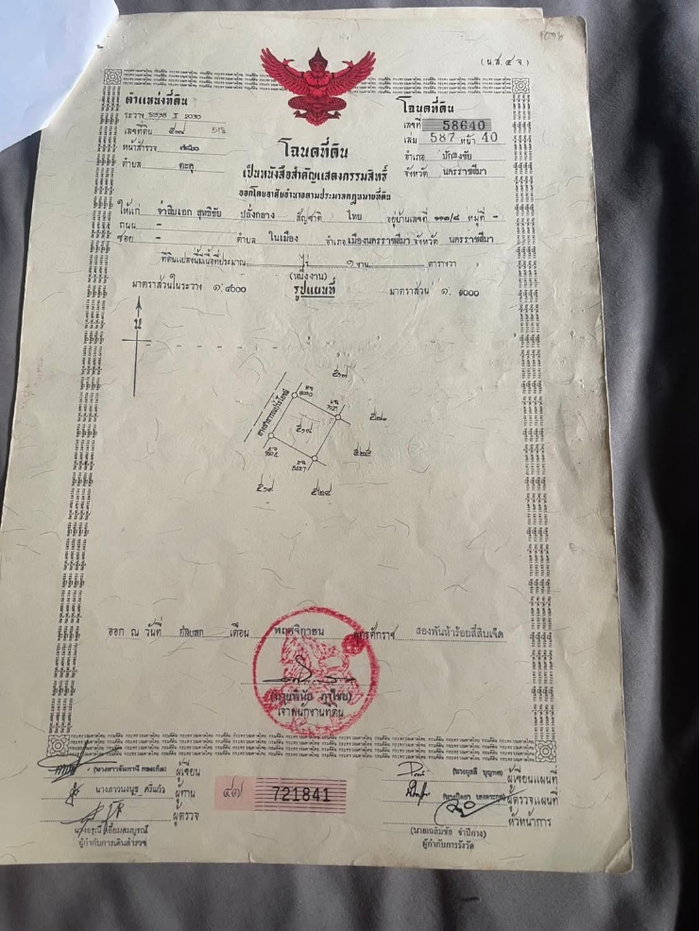 (น.ส.๔ จ.)
ตำแหน่งที่ดิน
ระวาง 5338 II 2030
เลขที่ดิน ๕๑๘
หน้าสำรวจ
ตำบล ตะคุ
โฉนดที่ดิน
เลขที่ 58640
เล่ม 587 หน้า 40
อำเภอ ปักธงชัย
จังหวัด นครราชสีมา
โฉนดที่ดิน
เป็นหนังสือสำคัญแสดงกรรมสิทธิ์
ออกโดยอาศัยอำนาจตามประมวลกฎหมายที่ดิน
ให้แก่ จ่าสิบเอก สุทธิชัย ปลั่งกลาง สัญชาติ ไทย อยู่บ้านเลขที่ ๑๑๓/๘ หมู่ที่ -
ถนน -
ซอย - ตำบล ในเมือง อำเภอ เมืองนครราชสีมา จังหวัด นครราชสีมา
ที่ดินแปลงนี้มีเนื้อที่ประมาณ ไร่ ๑ งาน ตารางวา
(หนึ่งงาน)
มาตราส่วนในระวาง ๑:๔๐๐๐ รูปแผนที่ มาตราส่วน ๑: ๑๐๐๐
น
ทางสาธารณประโยชน์
๕๑๗
๕๑๘
๕๒๕
๕๑๙
๕๒๔
ออก ณ วันที่ ยี่สิบหก เดือน พฤศจิกายน พุทธศักราช สองพันห้าร้อยสี่สิบเจ็ด
เจ้าพนักงานที่ดิน
ผู้เขียน
นางสาวนงนุช ศรีแก้ว ผู้ทาน
ผู้ตรวจ
นางอรุณี เอี่ยมสมบูรณ์
ผู้กำกับการเดินสำรวจ
๔๗ 721841
ผู้เขียนแผนที่
ผู้ตรวจแผนที่
หัวหน้าการ
(นายเฉลิมชัย จำปีกวาง)
ผู้กำกับการรังวัด